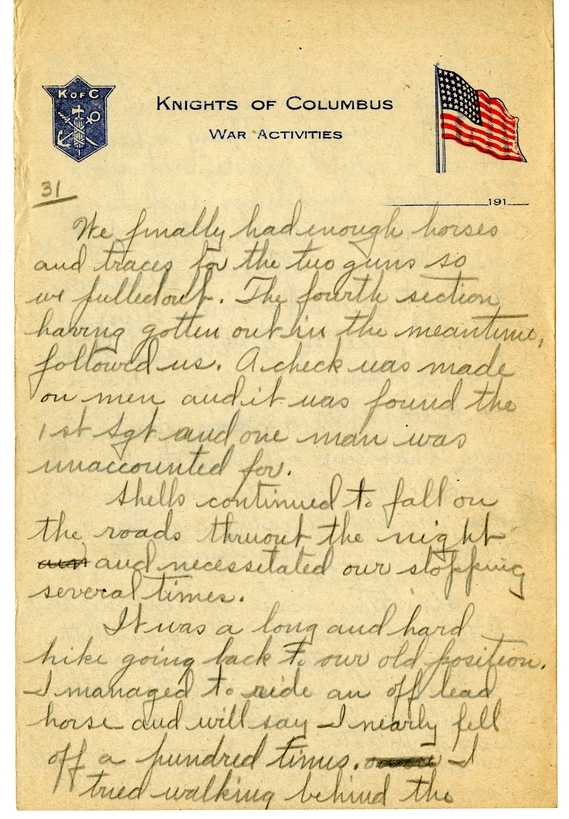 K OF C
KNIGHTS OF COLUMBUS
WAR ACTIVITIES
31
191
We finally had enough horses
and traces for the two guns so
we pulled out. The fourth section
having gotten out in the meantime,
followed us. A check was made
on men and it was found the
1st Sgt and one man was
unaccounted for.
Shells continued to fall on
the roads thruout the night
and necessitated our stopping
several times.
It was a long and hard
hike going back to our old position.
I managed to ride an off lead
horse and will say I nearly fell
off a hundred times. I
tried walking behind the